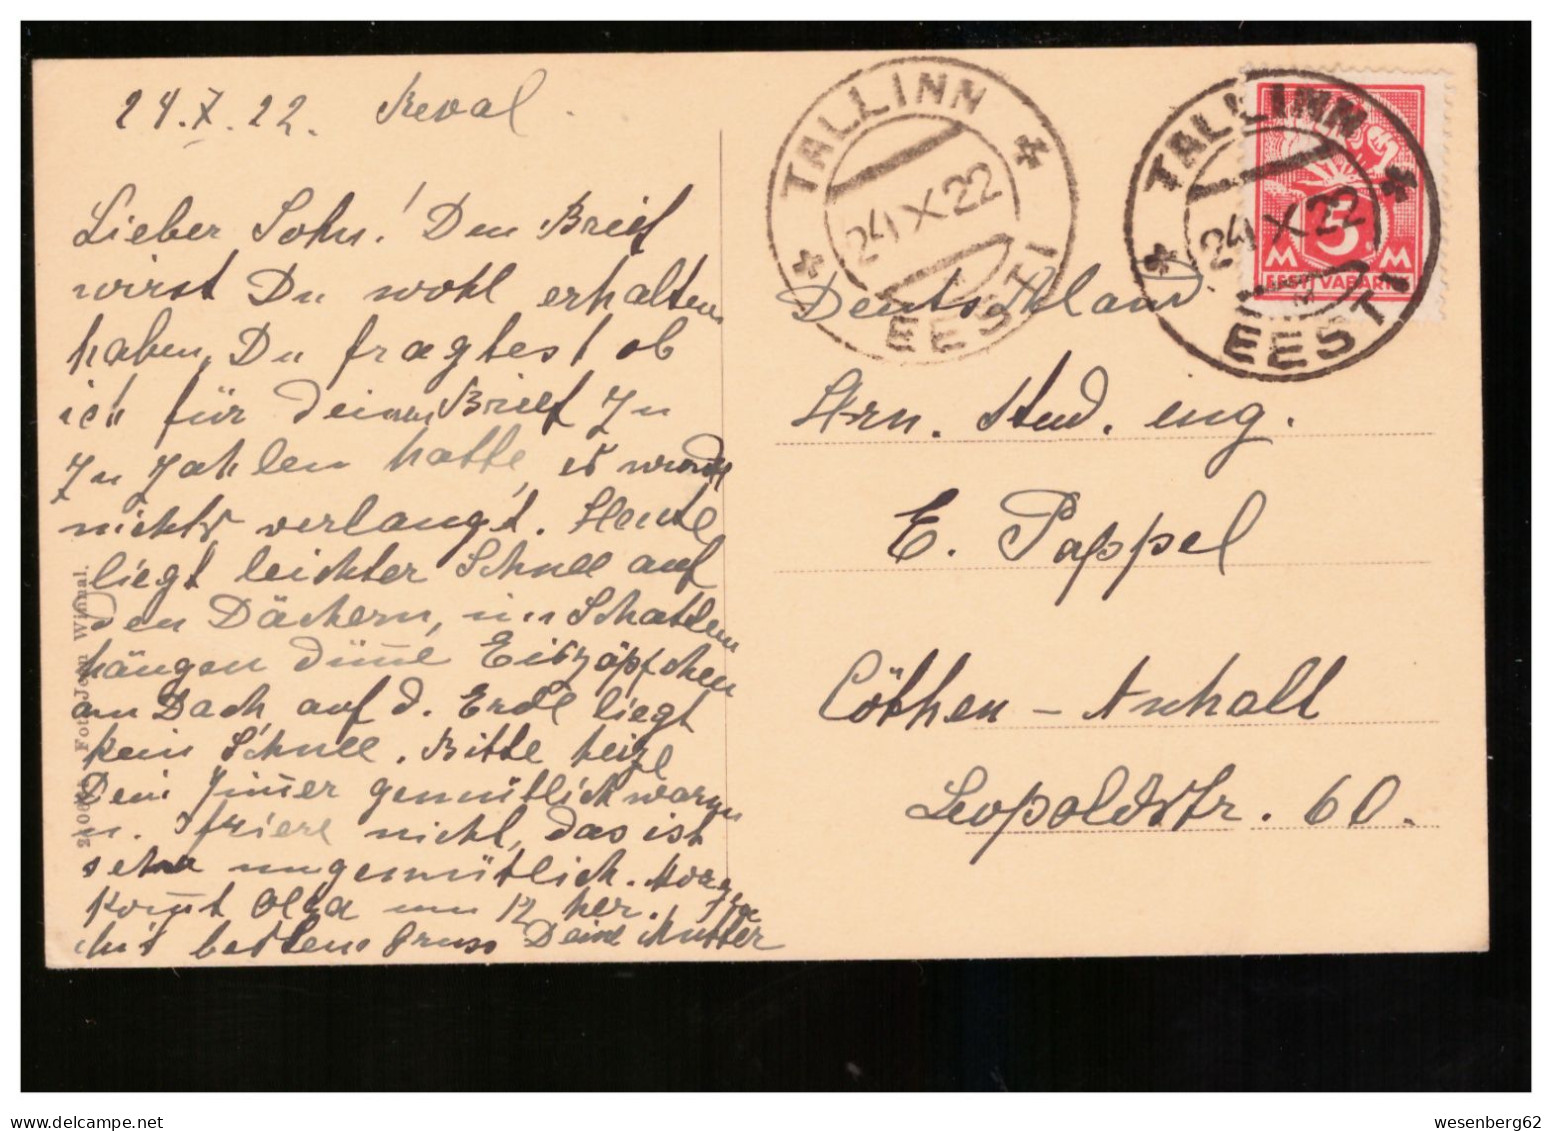 24.X.22. Reval.
Lieber Sohn! Den Brief
wirst Du wohl erhalten
haben, Du fragtest ob
ich für deinen Brief zu
zu zahlen hatte, es wurde
nichts verlangt. Heute
liegt leichter Schnee auf
den Dächern, im Schatten
hängen dünne Eiszäpfchen
am Dach, auf d. Erde liegt
kein Schnee. Bitte heize
Dein Zimer gemütlich warm
u. friere nicht, das ist
sehr ungemütlich. Morgen
komt Olga um 12 her.
Mit besten Gruss Deine Mutter
Foto Jean Wiemal.
TALLINN
24 X 22
EESTI
TALLINN
24 X 22
EESTI
5
M M
EESTI VABARIIK
Deutschland.
Hrn. stud. eng.
E. Pappel
Cöthen – Anhalt
Leopoldstr. 60.
wesenberg62